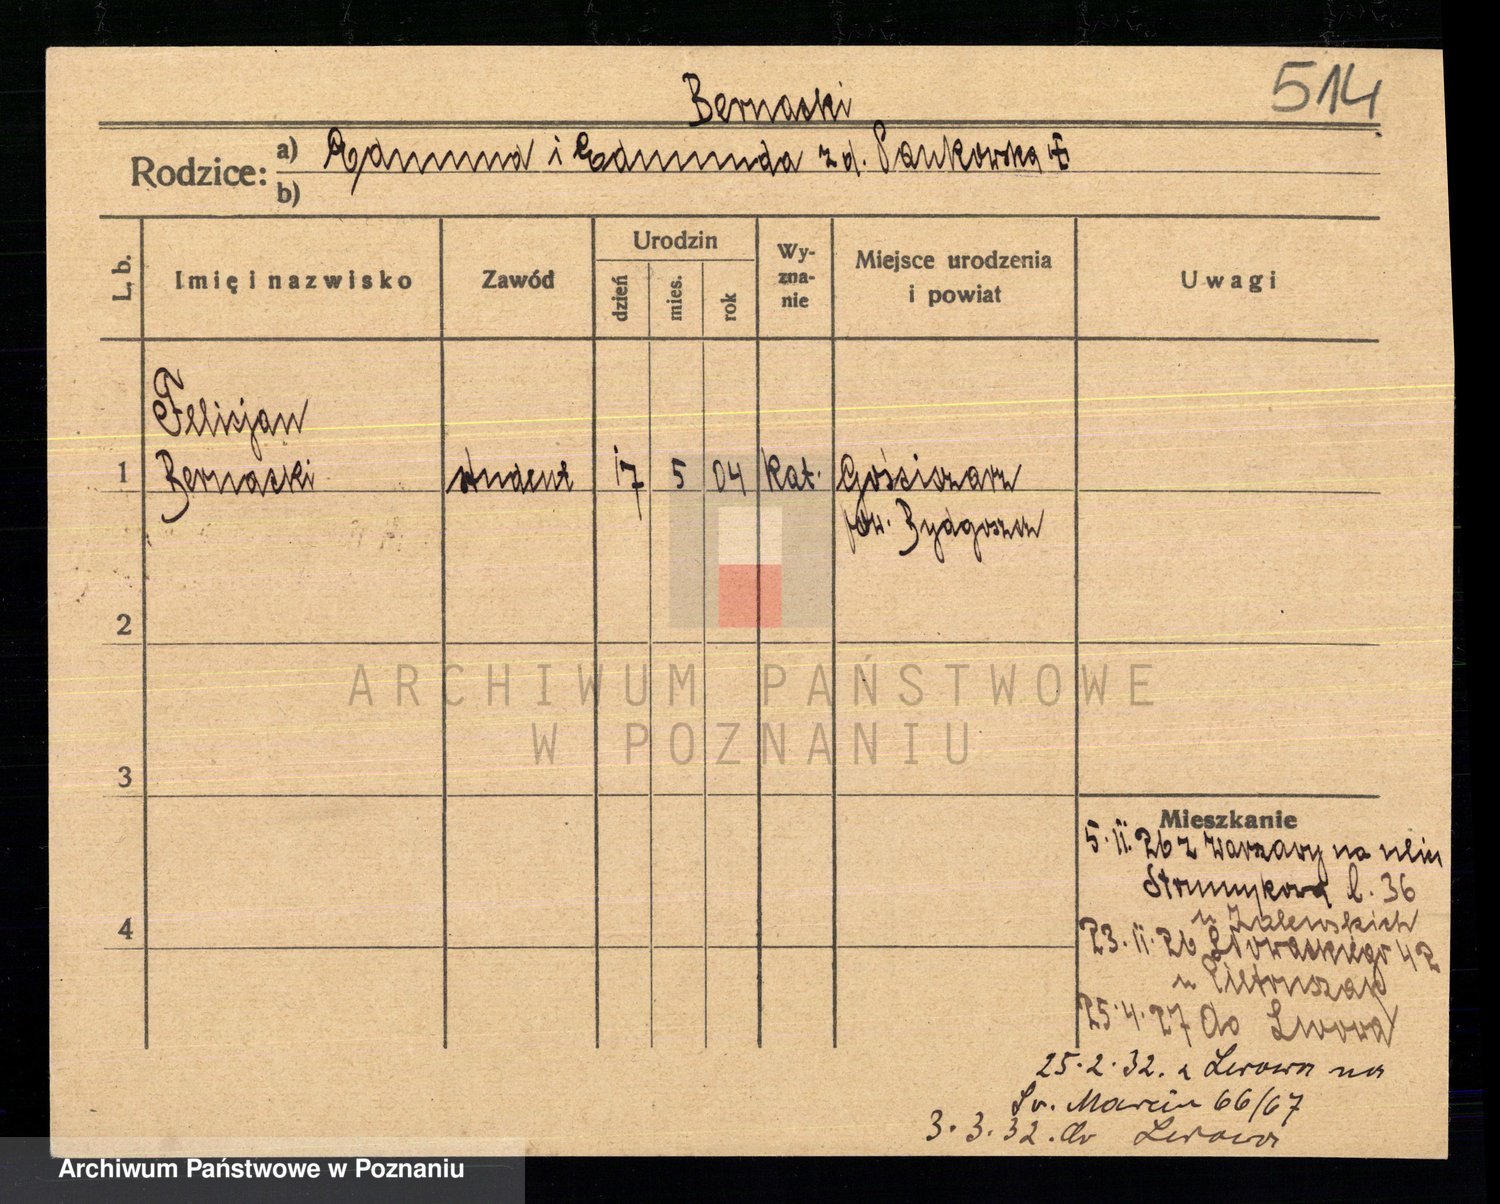 514
Bernacki
Rodzice:
a) Edmund i Edmunda z d. Pankowska
b)
L. b.
Imię i nazwisko
Zawód
Urodzin
dzień
mies.
rok
Wy-
zna-
nie
Miejsce urodzenia
i powiat
Uwagi
Felicjan
1 Bernacki student 17 5 04 kat. Gościeradz
pow. Bydgoszcz
2
ARCHIWUM PAŃSTWOWE
W POZNANIU
3
Mieszkanie
5.II.26 z Warszawy na ulicy
Strumykowa l. 36
u Zalewskich
4
23.II.26 Słowackiego 42
u Pietruszak
25.4.27 do Lwowa
25.2.32. z Lwowa na
Św. Marcin 66/67
3.3.32. do Lwowa
Archiwum Państwowe w Poznaniu